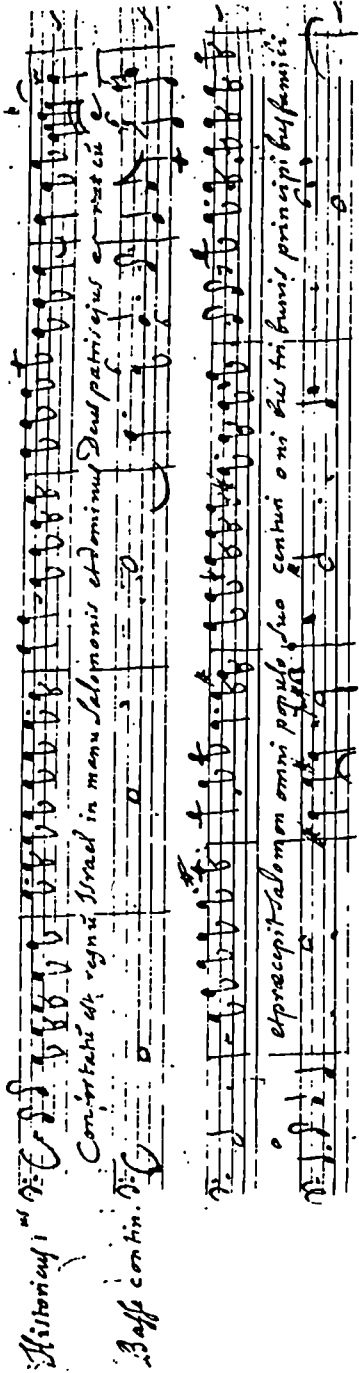 Historicus 1us
Confortatū est regnū Israel in manu Salomonis et dominus Deus patris ejus erat cū eo
Basse contin.
et præcepit Salomon omni populo suo centuri oni bus tri bunis principi bus familiæ